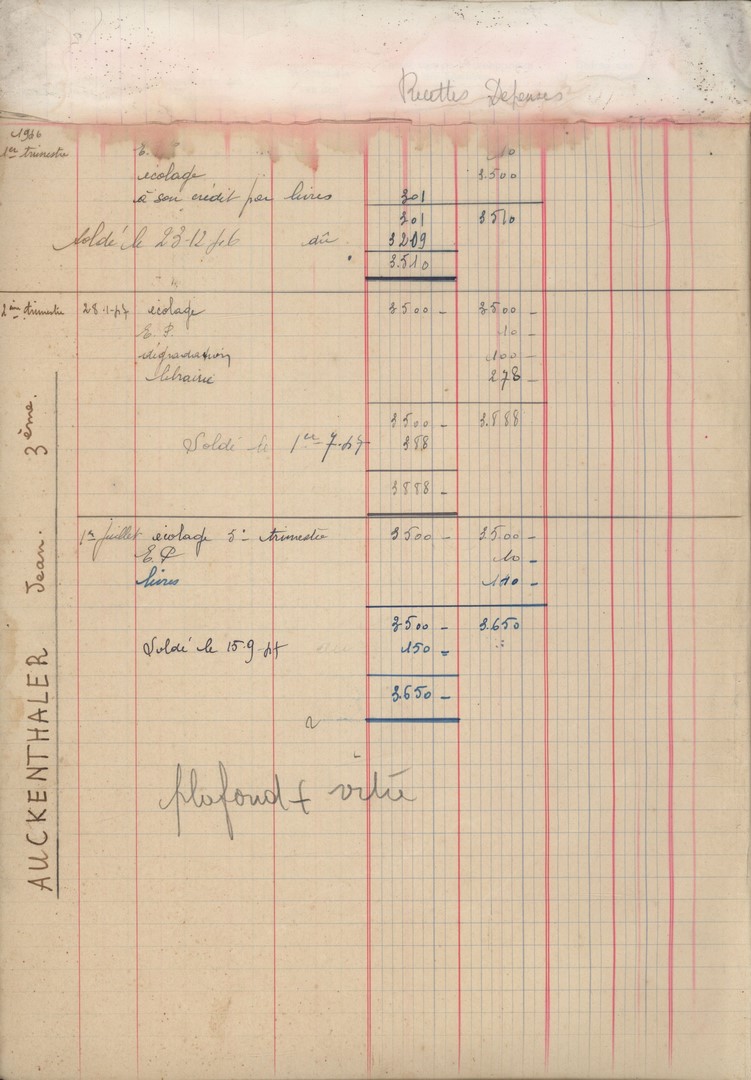 Recettes Depenses
1946
1er trimestre E. 10
écolage 3.500
à son crédit par livres 301
301 3510
Soldé le 23-12 dû 3209
3.510
2ème trimestre 28-1-47 écolage 3500 - 3500 -
E. P. 10 -
dégradation 100 -
librairie 278 -
3500 - 3.888
Soldé le 1er-7-47 388
3888 -
1er Juillet écolage 3e trimestre 3500 - 3500 -
E. P. 10 -
livres 140 -
3500 - 3.650
Soldé le 15-9-47 150 =
3.650 -
plafond + vitre
AUCKENTHALER Jean. 3ème.